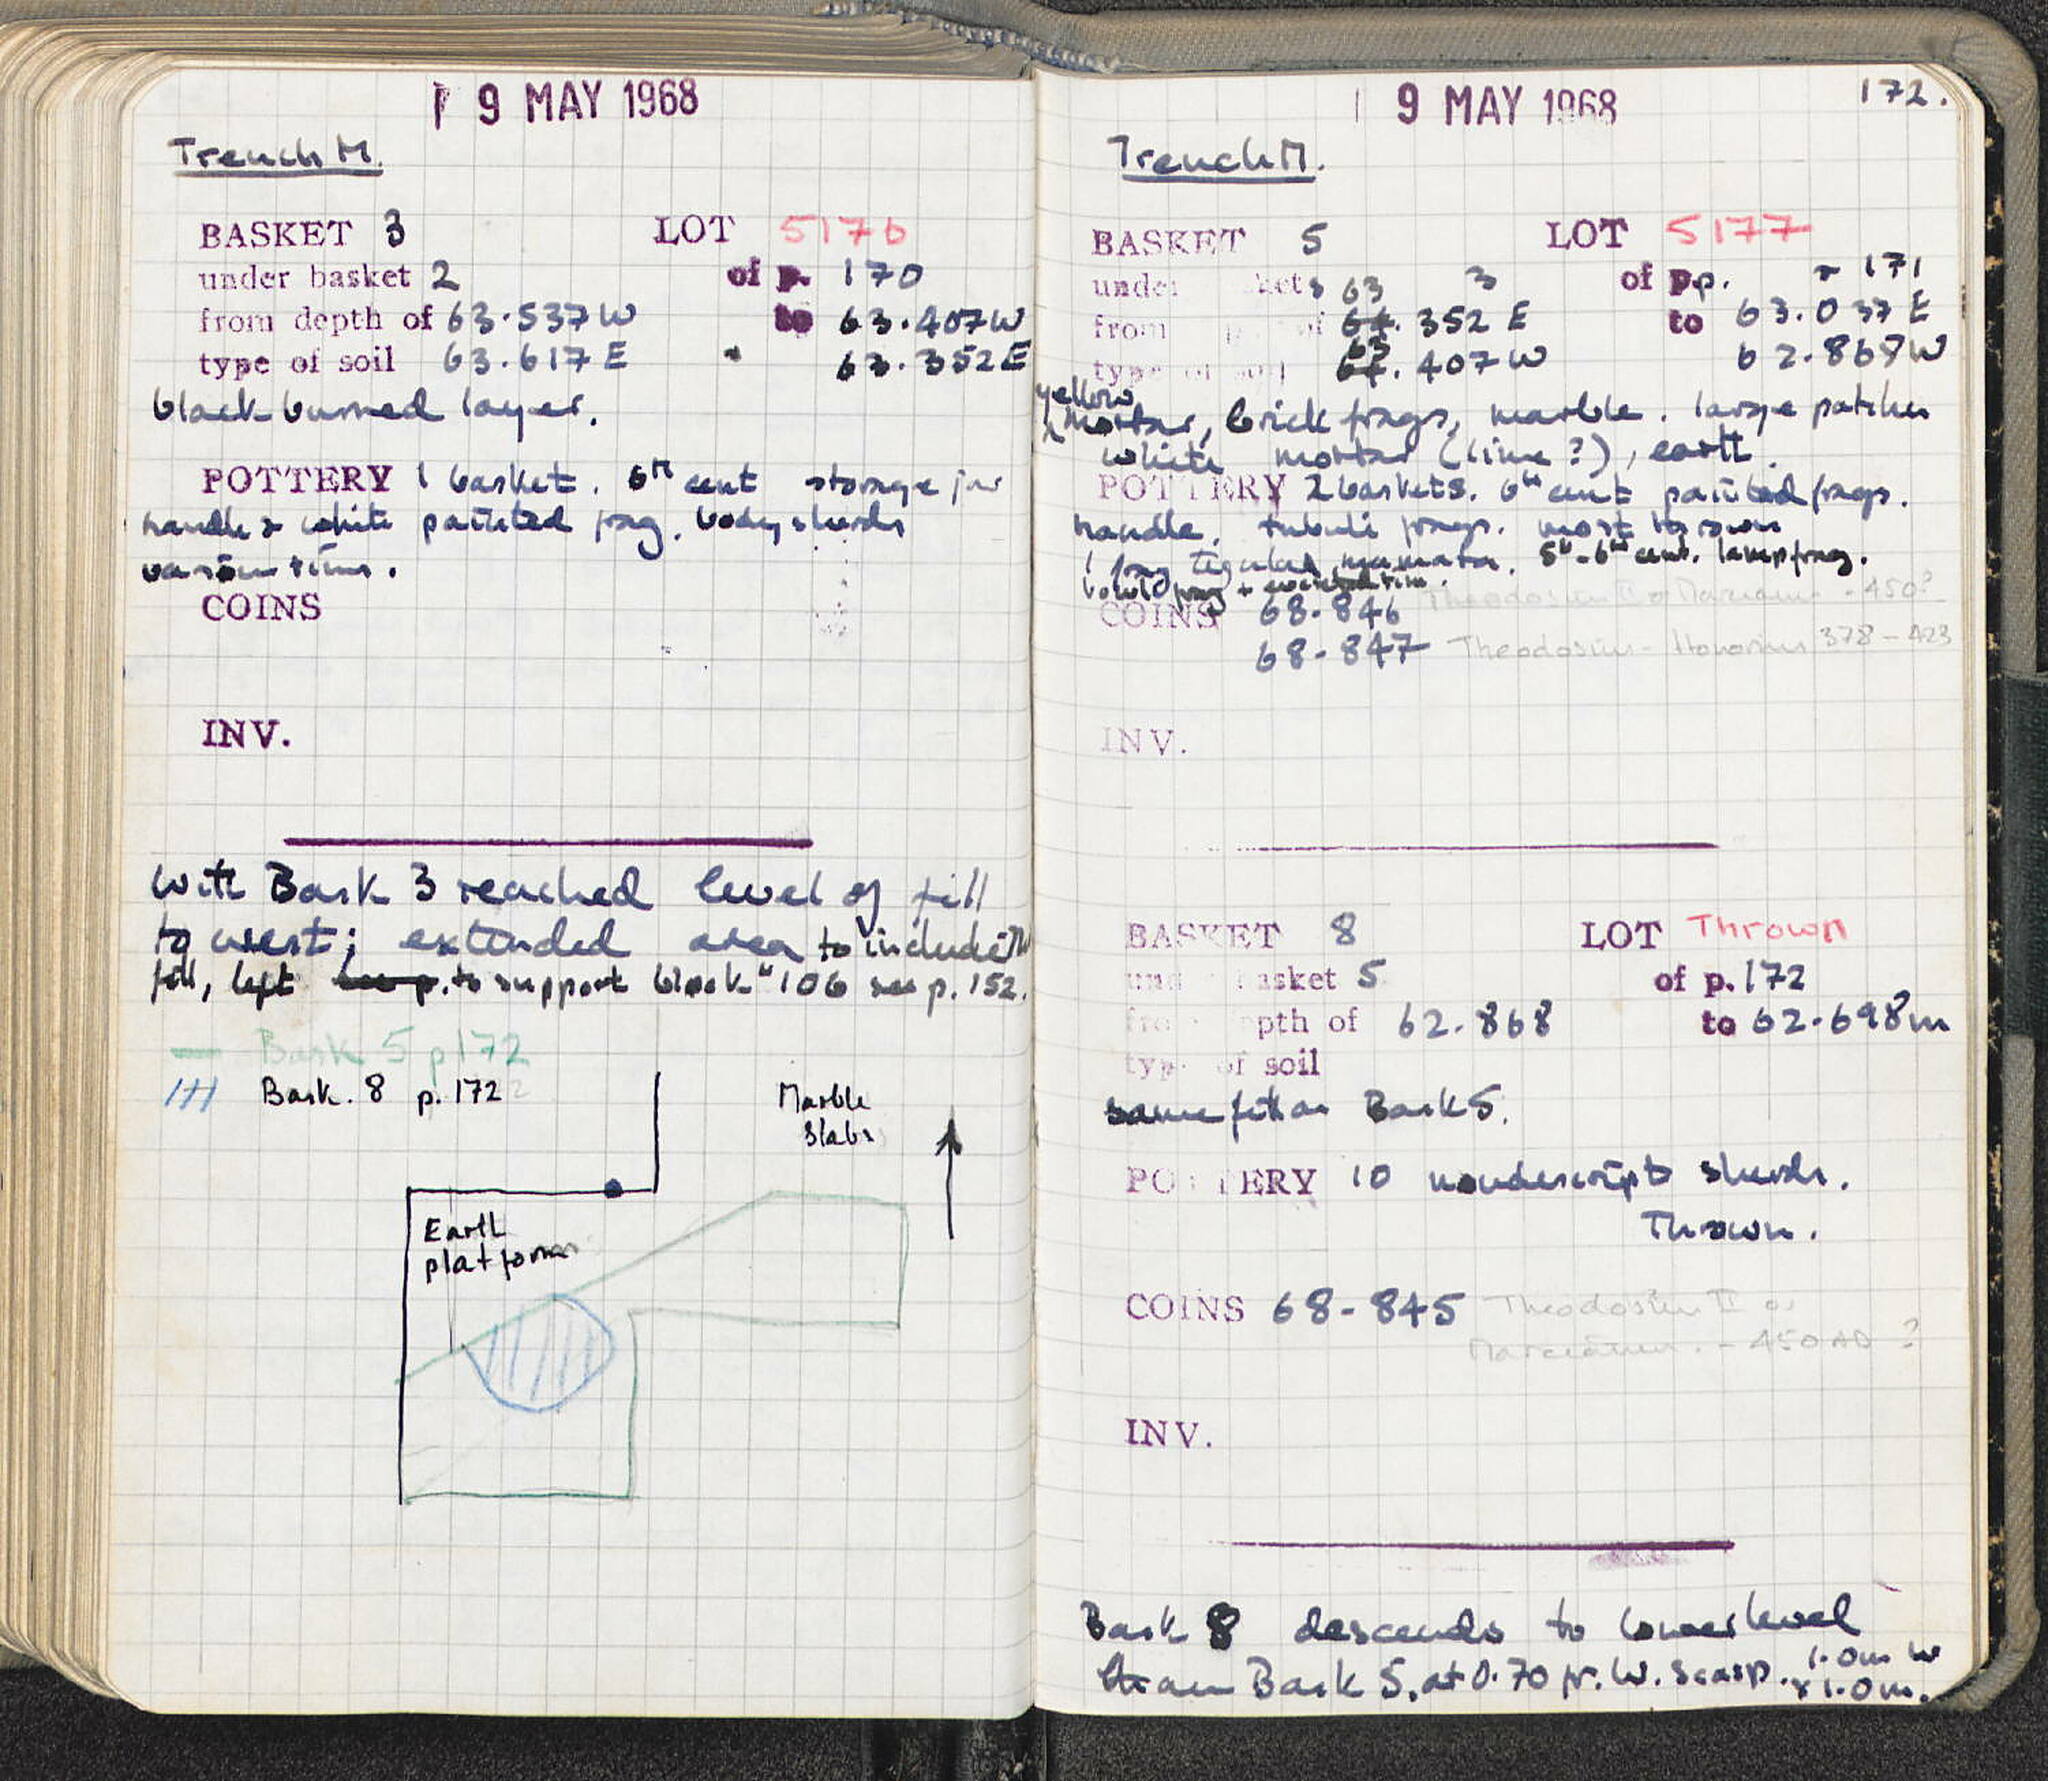 19 MAY 1968
Trench M.
BASKET 3 LOT 5176
under basket 2 of p. 170
from depth of 63.537 W to 63.407 W
type of soil 63.617 E " 63.352 E
black burned layer.
POTTERY 1 basket. 6th cent storage jar
handle & white painted frag. body sherds
various rims.
COINS
INV.
With Bask 3 reached level of fill
to west; extended area to include
fill, left to support block "106 see p. 152.
Bask 5 p 172
Bask. 8 p. 172
Marble
Slabs
Earth
platform
19 MAY 1968 172.
Trench M.
BASKET 5 LOT 5177
under baskets 3 of pp. 171
from 63.352 E to 63.037 E
type of soil 63.407 W 62.868 W
yellow
mortar, brick frags, marble. large patches
white mortar (lime?), earth.
POTTERY 2 baskets. 6th cent painted frags.
handle. tubuli frags. most thrown
1 frag tegula mammata. 5th-6th cent. lamp frag.
bowl frag +
COINS 68-846 Theodosius II or Marcianus - 450?
68-847 Theodosius - Honorius 378-423
INV.
BASKET 8 LOT Thrown
under basket 5 of p. 172
from depth of 62.868 to 62.698 m
type of soil
same fill as Bask 5.
POTTERY 10 nondescript sherds.
Thrown.
COINS 68-845 Theodosius II or
Marcianus. - 450 AD ?
INV.
Bask 8 descends to lower level
than Bask 5, at 0.70 fr. W. scarp. 1.0m W
x 1.0m.